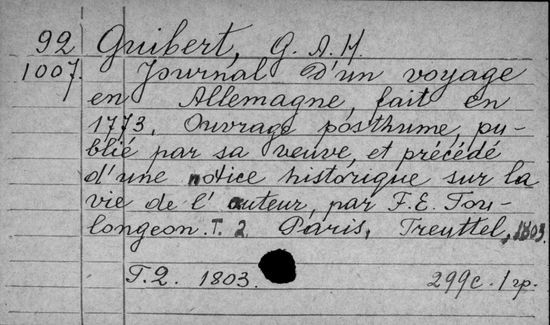 92 Guibert, G. A. H.
1007. Journal d'un voyage
en Allemagne, fait en
1773. Ouvrage posthume, pu-
blié par sa veuve, et précédé
d'une notice historique sur la
vie de l'auteur, par F. E. Tou-
longeon. T. 2 Paris, Treuttel, 1803.
T. 2. 1803. 299c. 1 гр.